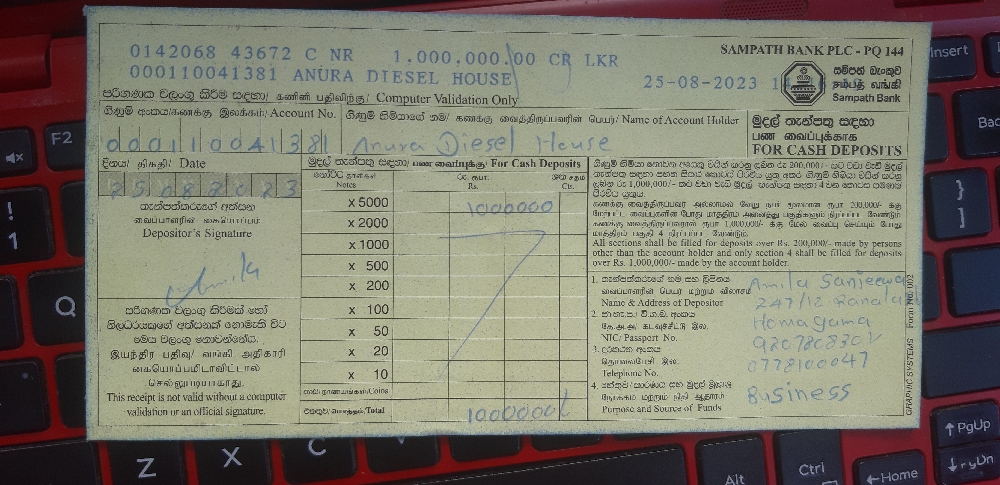 0142068 43672 C NR 1,000,000.00 CR LKR
000110041381 ANURA DIESEL HOUSE
25-08-2023
SAMPATH BANK PLC - PQ 144
සම්පත් බැංකුව
சம்பத் வங்கி
Sampath Bank
පරිගණක වලංගු කිරීම සඳහා/ கணினி பதிவிற்கு/ Computer Validation Only
ගිණුම් අංකය/கணக்கு இலக்கம்/ Account No. ගිණුම් හිමියාගේ නම/ கணக்கு வைத்திருப்பவரின் பெயர்/ Name of Account Holder
000110041381 Anura Diesel House
මුදල් තැන්පතු සඳහා
பண வைப்புக்காக
FOR CASH DEPOSITS
දිනය/ திகதி/ Date
25082023
තැන්පත්කරුගේ අත්සන
வைப்பாளரின் கையொப்பம்
Depositor's Signature
පරිගණක වලංගු කිරීමක් හෝ
නිලධාරියකුගේ අත්සනක් නොමැති විට
මෙය වලංගු නොවන්නේය.
இயந்திர பதிவு/ வங்கி அதிகாரி
கையொப்பமிடாவிட்டால்
செல்லுபடியாகாது.
This receipt is not valid without a computer
validation or an official signature.
මුදල් තැන්පතු සඳහා/ பண வைப்புக்கு/ For Cash Deposits
Notes
රු. ரூபா.
Rs.
ශත சதம்
Cts.
x 5000 1000000
x 2000
x 1000
x 500
x 200
x 100
x 50
x 20
x 10
Coins
Total 1000000/
All sections shall be filled for deposits over Rs. 200,000/- made by persons
other than the account holder and only section 4 shall be filled for deposits
over Rs. 1,000,000/- made by the account holder.
1. තැන්පත්කරුගේ නම සහ ලිපිනය
வைப்பாளரின் பெயர் மற்றும் விலாசம்
Name & Address of Depositor
Amila Sanjeewa
247/12 Ranala
Homagama
2.
NIC/ Passport No.
920780830V
3. දුරකථන අංකය
தொலைபேசி இல.
Telephone No.
0778100047
4.
Purpose and Source of Funds
Business
GRAPHIC SYSTEMS Form No. 002
Insert
F2
!
1
Q
Z
X
C
Alt
Ctrl
Home
PgUp
PgDn
Backs
}
]